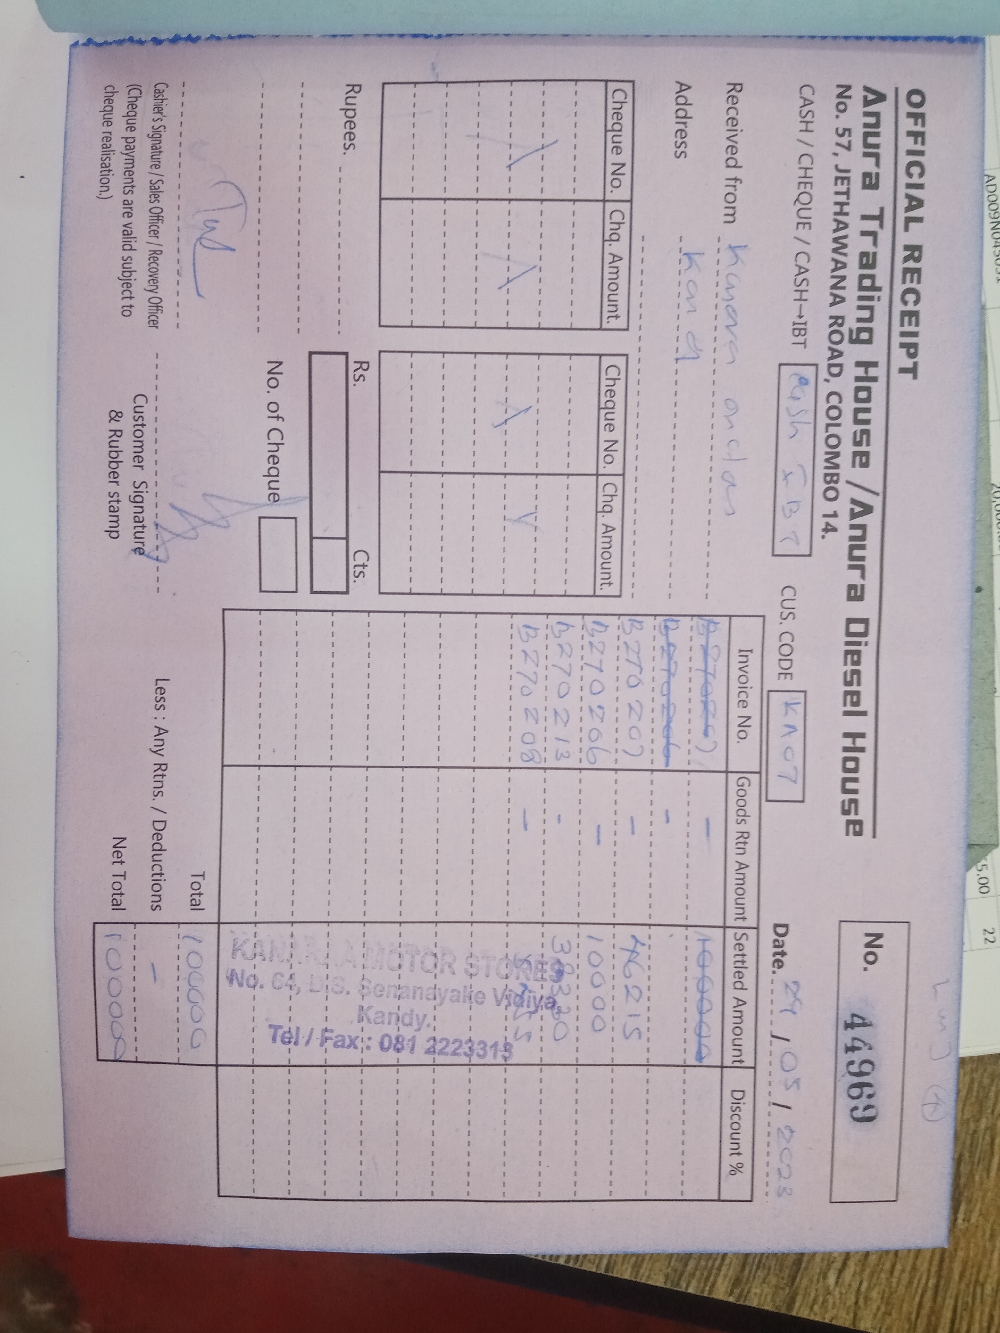 OFFICIAL RECEIPT
Anura Trading House / Anura Diesel House
No. 57, JETHAWANA ROAD, COLOMBO 14.
No. 44969
CASH / CHEQUE / CASH→IBT cash IBT
CUS. CODE KA07
Date. 29 / 05 / 2023
Received from
Address Kandy
Cheque No. Chq. Amount. Cheque No. Chq. Amount.
Invoice No. Goods Rtn Amount Settled Amount Discount %
B270207 - 100000
B270206 -
B270207 - 46215
B270206 - 10000
B270213 -
B270208 -
KANDARA MOTOR STORES
No. 64, D.S. Senanayake Vidiya,
Kandy.
Tel / Fax : 081 2223313
Rupees.
Rs. Cts.
No. of Cheque
Total 100000
Less : Any Rtns. / Deductions -
Net Total 100000
Cashier's Signature / Sales Officer / Recovery Officer
(Cheque payments are valid subject to
cheque realisation.)
Customer Signature
& Rubber stamp
22
5.00